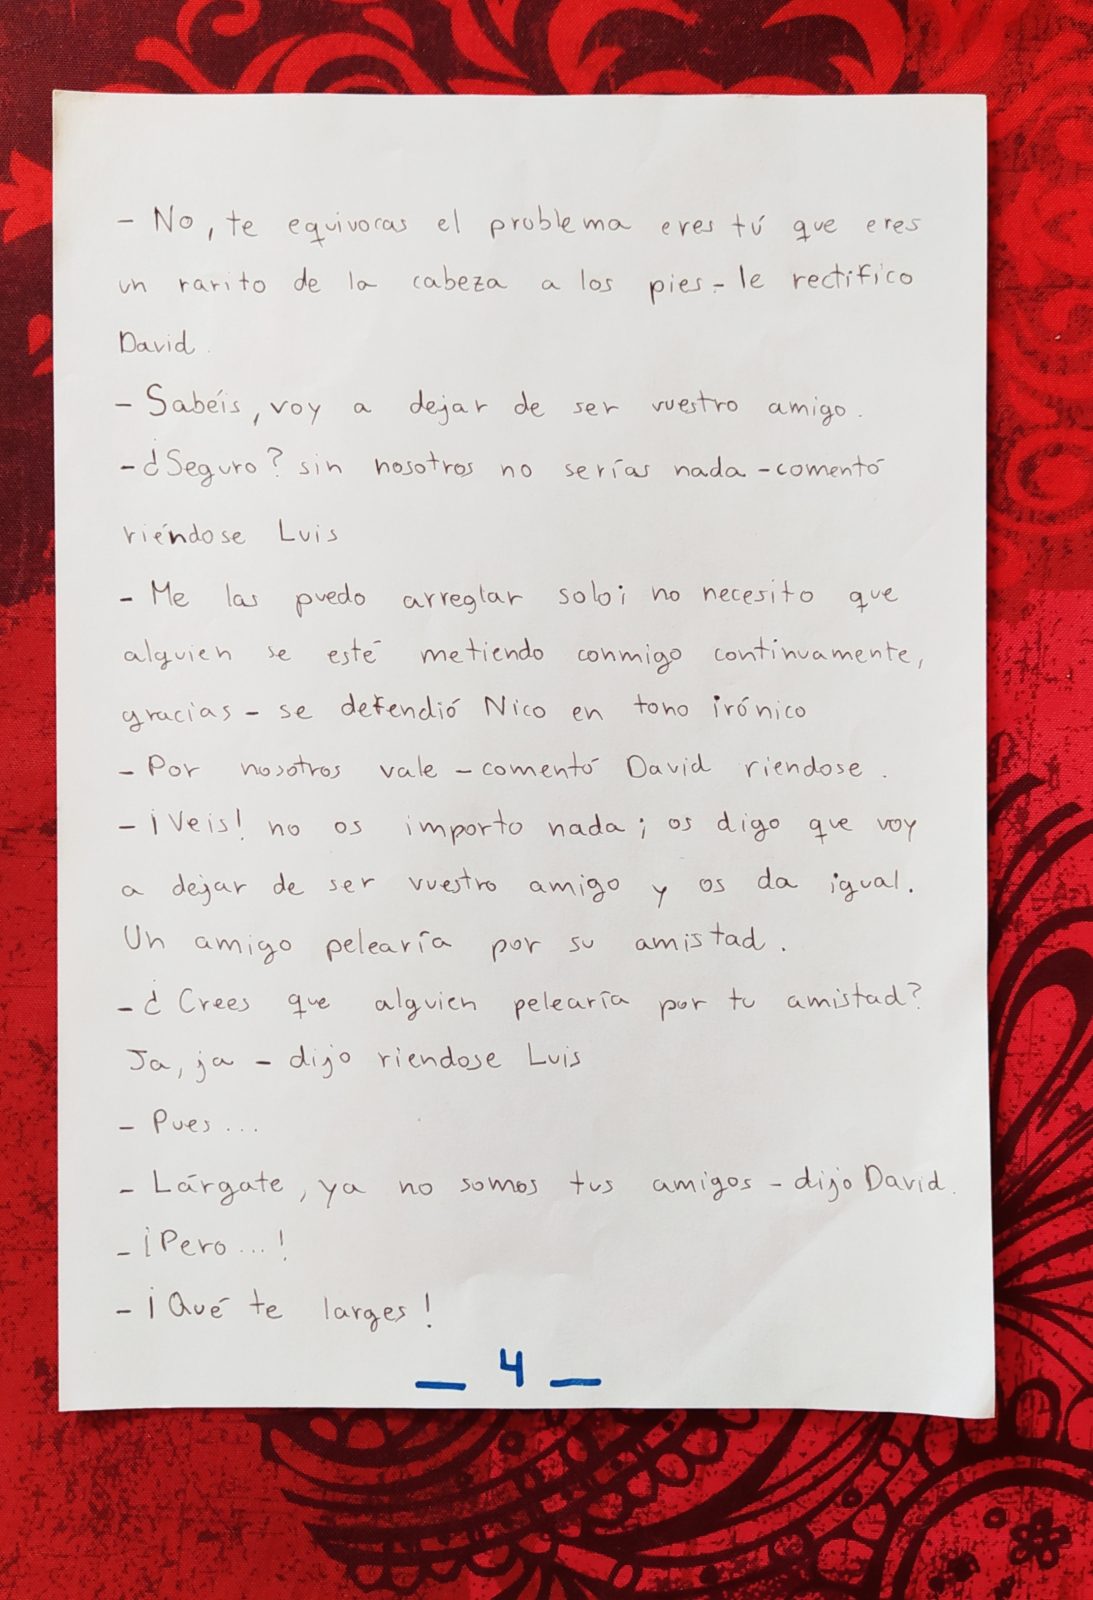 - No, te equivocas el problema eres tú que eres
un rarito de la cabeza a los pies - le rectifico
David.
- Sabéis, voy a dejar de ser vuestro amigo.
- ¿Seguro? sin nosotros no serías nada - comentó
riéndose Luis
- Me las puedo arreglar solo; no necesito que
alguien se esté metiendo conmigo continuamente,
gracias - se defendió Nico en tono irónico
- Por nosotros vale - comentó David riendose.
- ¡Veis! no os importo nada; os digo que voy
a dejar de ser vuestro amigo y os da igual.
Un amigo pelearía por su amistad.
- ¿Crees que alguien pelearía por tu amistad?
Ja, ja - dijo riendose Luis
- Pues...
- Lárgate, ya no somos tus amigos - dijo David.
- ¡Pero...!
- ¡Qué te larges!
_ 4 _